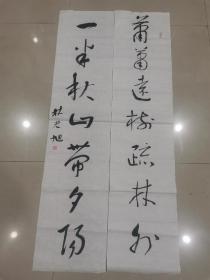 萧萧远树疏林外
一半秋山带夕阳